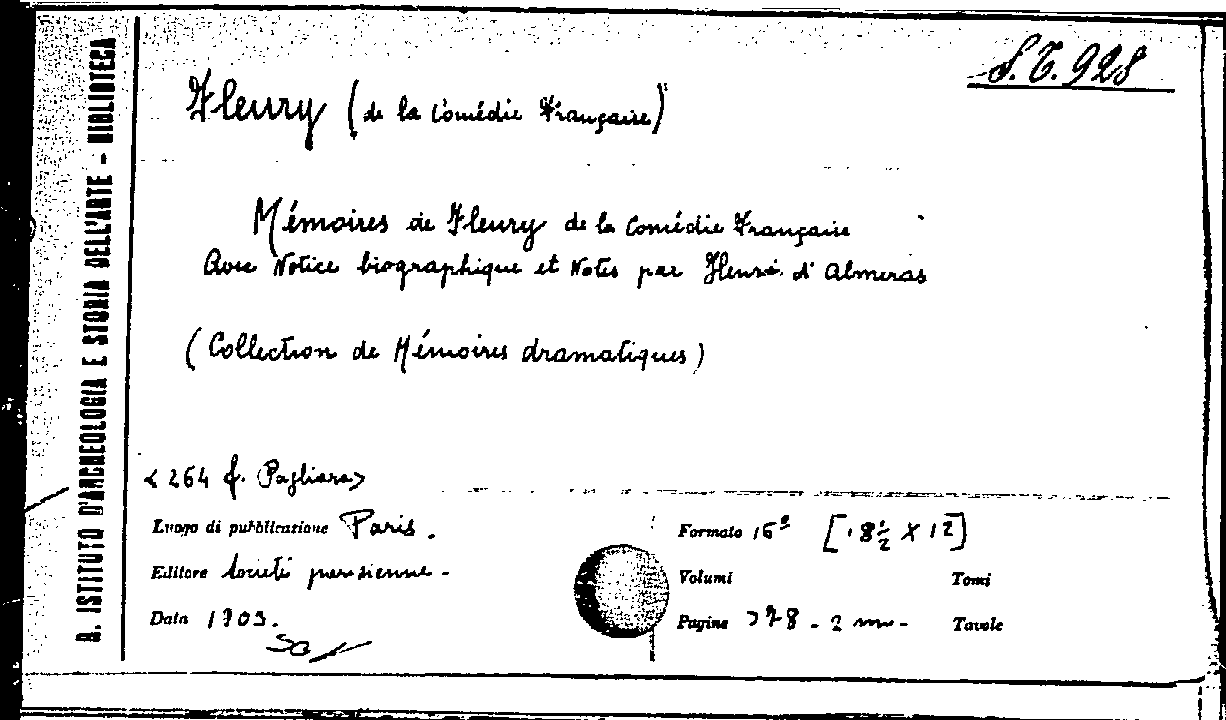 S.T. 928
Fleury (de la Comédie Française)
Mémoires de Fleury de la Comédie Française
Avec Notice biographique et Notes par Henri d'Almeras
(Collection de Mémoires dramatiques)
<264 f. Pagliara>
Luogo di pubblicazione Paris.
Editore Société parisienne -
Data 1903.
Formato 16º [18½ X 12]
Volumi Tomi
Pagine 378 - 2 Tavole
R. ISTITUTO D'ARCHEOLOGIA E STORIA DELL'ARTE - BIBLIOTECA